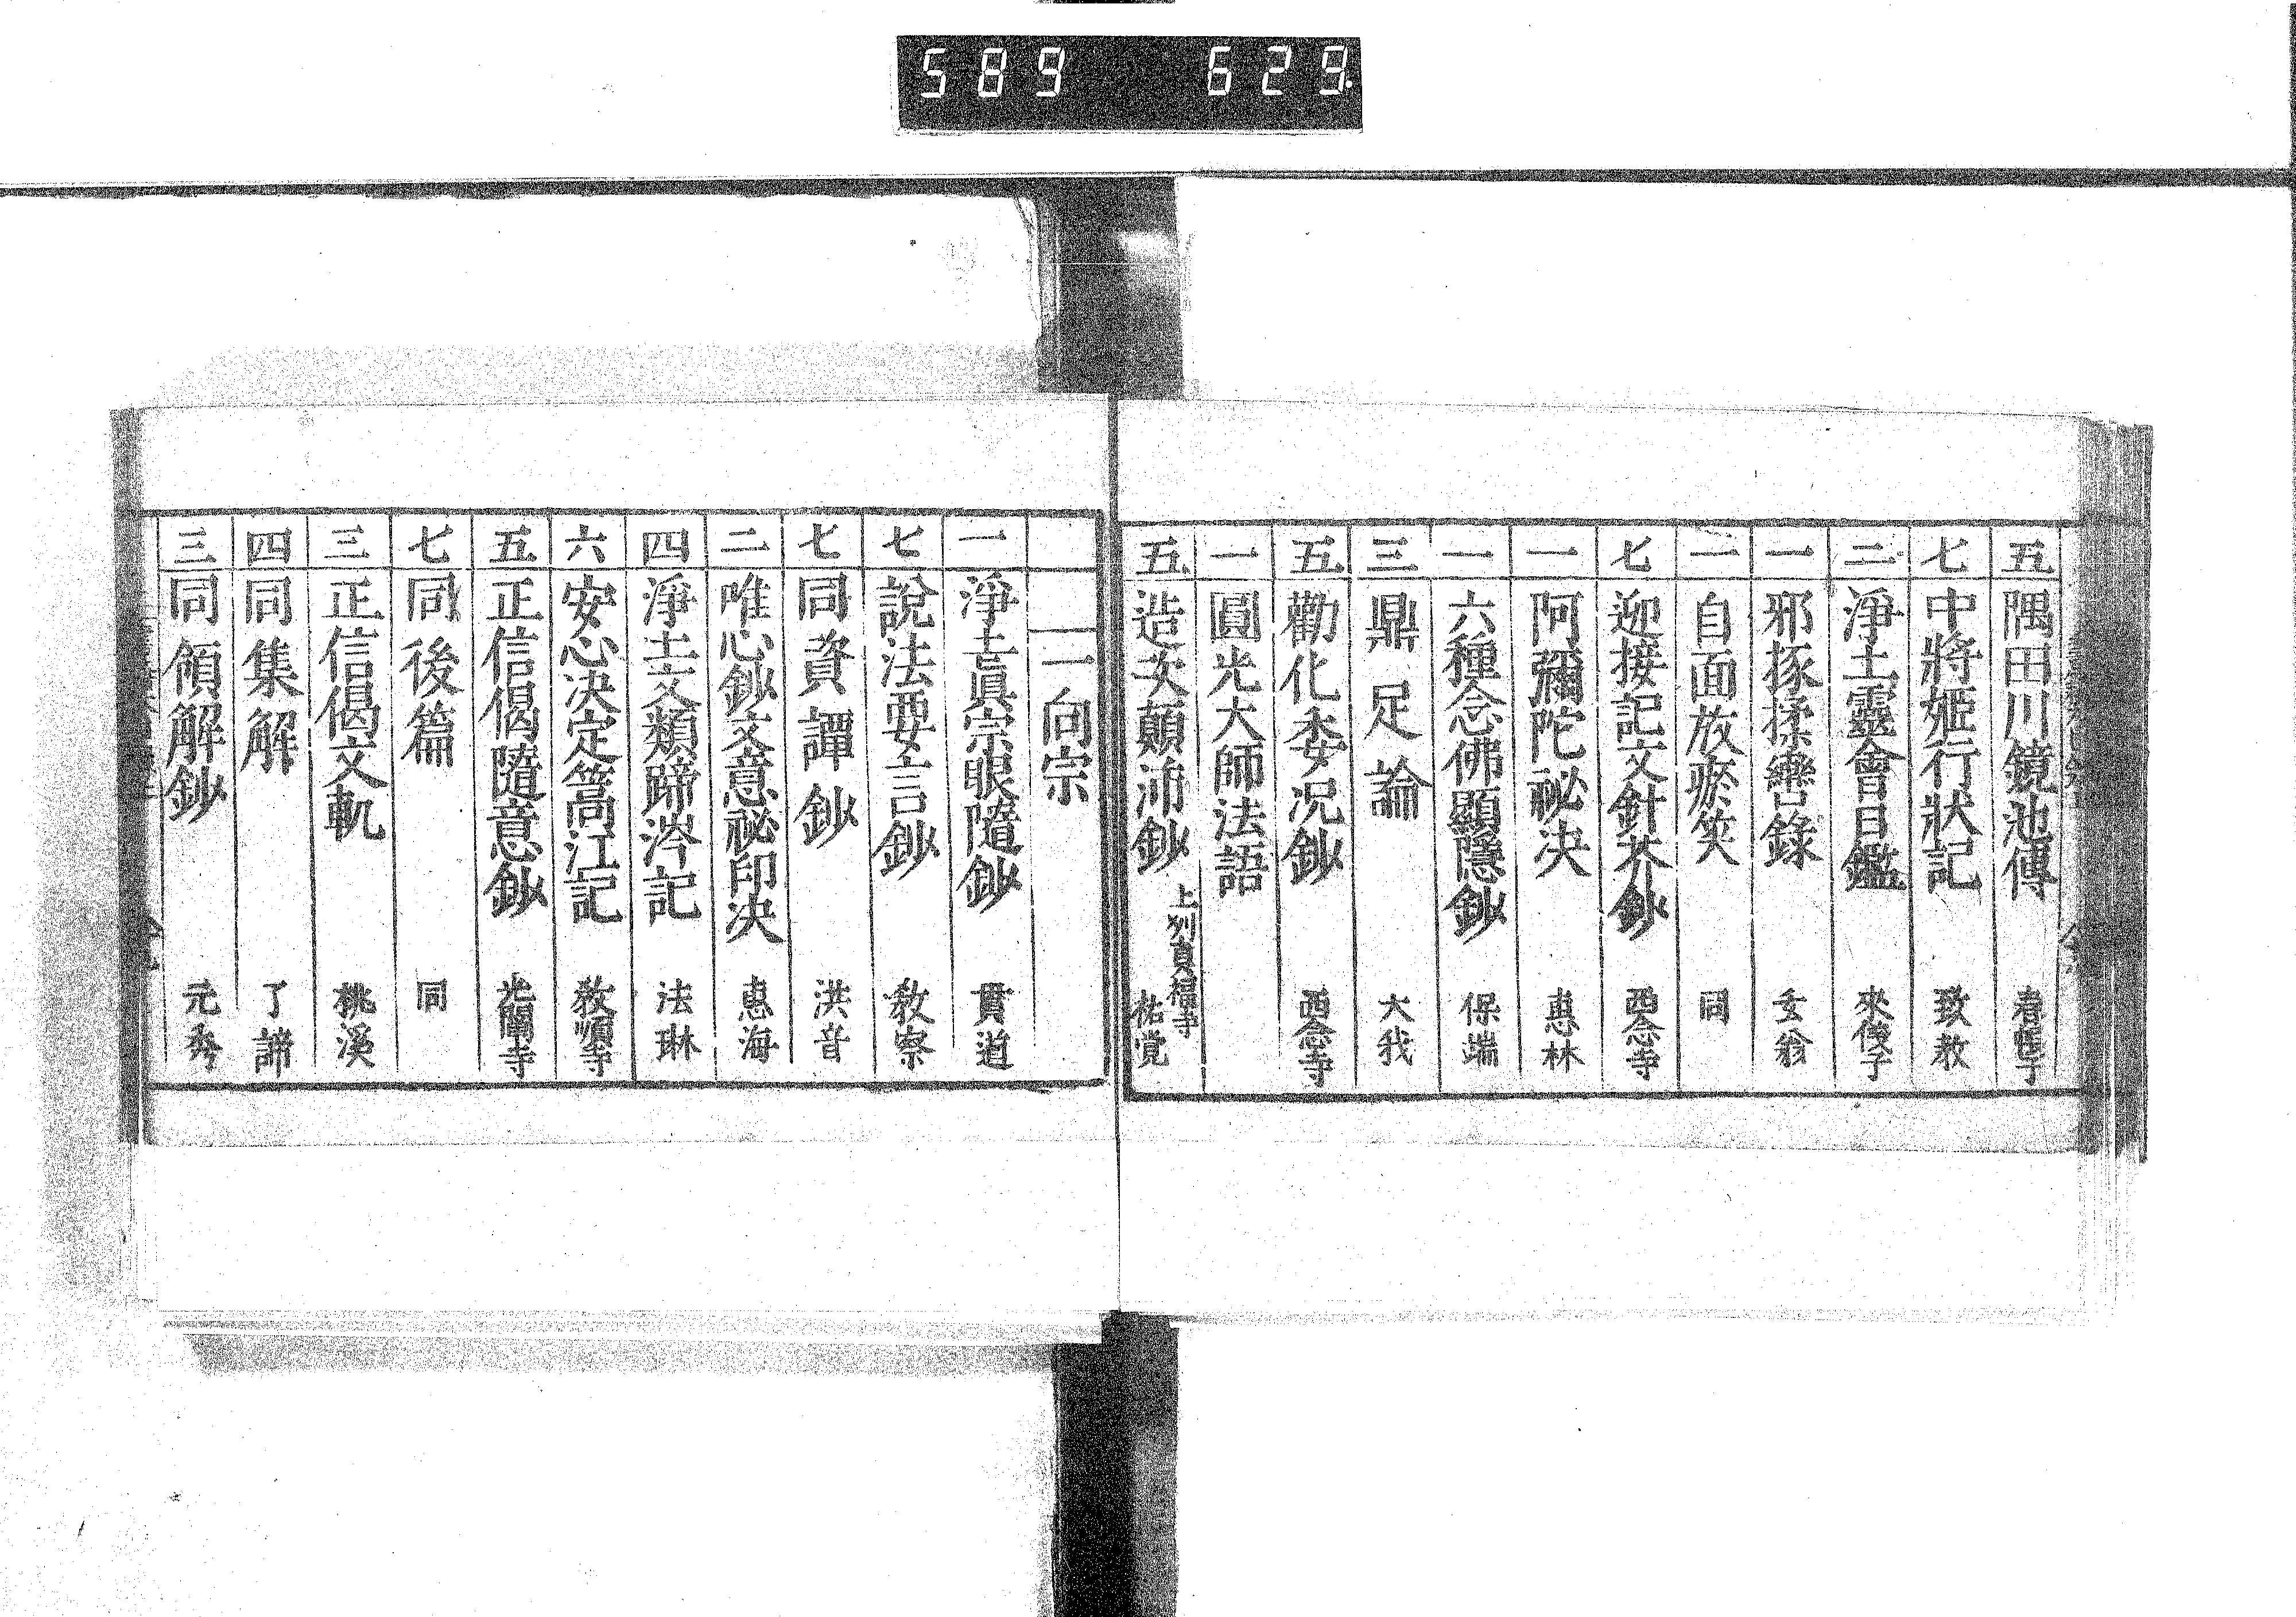 589 629.
五 隅田川鏡池傳 春帳子
七 中將姫行狀記 致敎
二 淨土靈會日鑑 來俊子
一 邪揼揉轡録 玄翁
一 自面放瘀笑 同
七 迎接記文針芥鈔 西念寺
一 阿彌陀祕决 惠林
一 六種念佛顯隱鈔 保端
三 鼎足論 大我
五 勸化委况鈔 西念寺
一 圓光大師法語
五 造次顛沛鈔 上列真福寺 祐覚
一向宗
一 淨土眞宗眼隨鈔 貫道
七 說法要言鈔 敎察
七 同資譚鈔 洪音
二 唯心鈔文意祕印决 惠海
四 淨土文類蹄涔記 法琳
六 安心决定篙江記 敎順寺
五 正信偈隨意鈔 光闡寺
七 同後篇 同
三 正信偈文軌 桃溪
四 同集解 了諦
三 同領解鈔 元秀